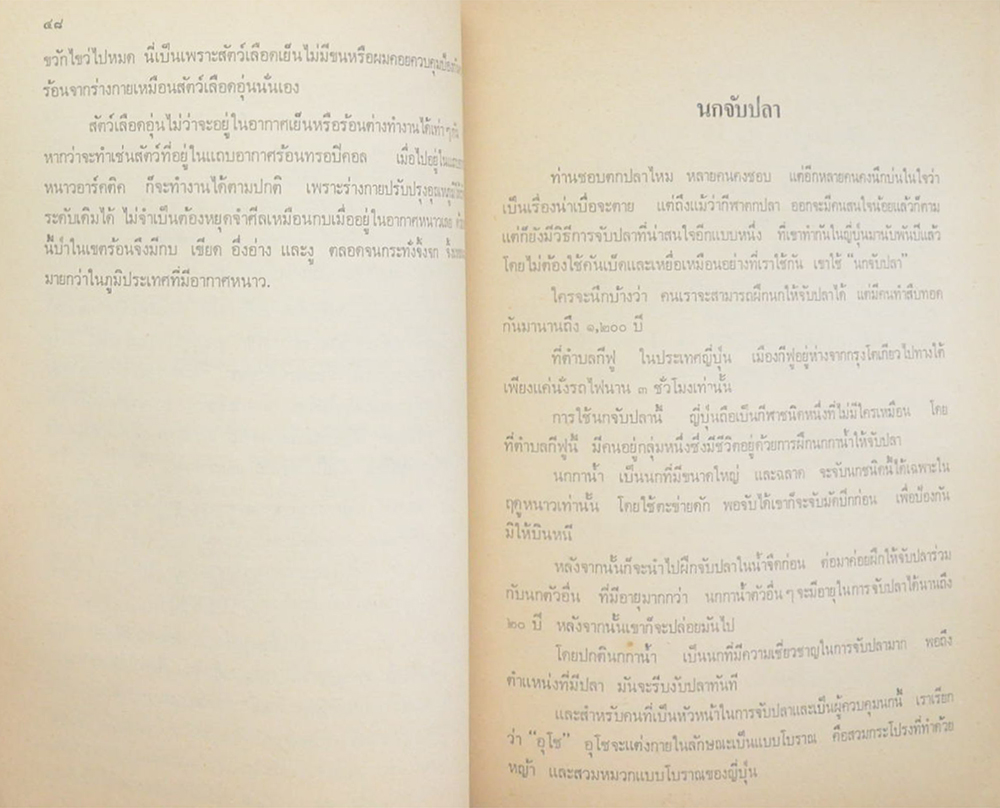 ๔๘
ขวักไขว่ไปหมด นี่เป็นเพราะสัตว์เลือดเย็นไม่มีขนหรือผมคอยควบคุม
ร้อนจากร่างกายเหมือนสัตว์เลือดอุ่นนั่นเอง
สัตว์เลือดอุ่นไม่ว่าจะอยู่ในอากาศเย็นหรือร้อนต่างทำงานได้เท่าๆกัน
หากว่าจะทำเช่นสัตว์ที่อยู่ในแถบอากาศร้อนทรอปีคอล เมื่อไปอยู่ใน
หนาวอาร์คติค ก็จะทำงานได้ตามปกติ เพราะร่างกายปรับปรุงอุณหภูมิ
ระดับเดิมได้ ไม่จำเป็นต้องหยุดจำศีลเหมือนกบเมื่ออยู่ในอากาศหนาวเลย
นี้ป่าในเขตร้อนจึงมีกบ เขียด อึ่งอ่าง และงู ตลอดจนกระทั่งจิ้งจก
มายกว่าในภูมิประเทศที่มีอากาศหนาว.
นกจับปลา
ท่านชอบตกปลาไหม หลายคนคงชอบ แต่อีกหลายคนคงนึกบ่นในใจว่า
เป็นเรื่องน่าเบื่อจะตาย แต่ถึงแม้ว่ากีฬาตกปลา ออกจะมีคนสนใจน้อยแล้วก็ตาม
แต่ก็ยังมีวิธีการจับปลาที่น่าสนใจอีกแบบหนึ่ง ที่เขาทำกันในญี่ปุ่นมานับพันปีแล้ว
โดยไม่ต้องใช้คันเบ็ดและเหยื่อเหมือนอย่างที่เราใช้กัน เขาใช้ “นกจับปลา”
ใครจะนึกบ้างว่า คนเราจะสามารถฝึกนกให้จับปลาได้ แต่มีคนทำสืบทอด
กันมานานถึง ๑,๒๐๐ ปี
ที่ตำบลกีฟู ในประเทศญี่ปุ่น เมืองกีฟูอยู่ห่างจากกรุงโตเกียวไปทางใต้
เพียงแค่นั่งรถไฟนาน ๓ ชั่วโมงเท่านั้น
การใช้นกจับปลานี้ ญี่ปุ่นถือเป็นกีฬาชนิดหนึ่งที่ไม่มีใครเหมือน โดย
ที่ตำบลกีฟูนี้ มีคนอยู่กลุ่มหนึ่งซึ่งมีชีวิตอยู่ด้วยการฝึกนกกาน้ำให้จับปลา
นกกาน้ำ เป็นนกที่มีขนาดใหญ่ และฉลาด จะจับนกชนิดนี้ได้เฉพาะใน
ฤดูหนาวเท่านั้น โดยใช้ตะข่ายดัก พอจับได้เขาก็จะจับมัดปีกก่อน เพื่อป้องกัน
มิให้บินหนี
หลังจากนั้นก็จะนำไปฝึกจับปลาในน้ำจืดก่อน ต่อมาค่อยฝึกให้จับปลาร่วม
กับนกตัวอื่น ที่มีอายุมากกว่า นกกาน้ำตัวอื่นๆจะมีอายุในการจับปลาได้นานถึง
๒๐ ปี หลังจากนั้นเขาก็จะปล่อยมันไป
โดยปกตินกกาน้ำ เป็นนกที่มีความเชี่ยวชาญในการจับปลามาก พอถึง
ตำแหน่งที่มีปลา มันจะรีบงับปลาทันที
และสำหรับคนที่เป็นหัวหน้าในการจับปลาและเป็นผู้ควบคุมนกนี้ เราเรียก
ว่า “อุโช” อุโชจะแต่งกายในลักษณะเป็นแบบโบราณ คือสวมกระโปรงที่ทำด้วย
หญ้า และสวมหมวกแบบโบราณของญี่ปุ่น